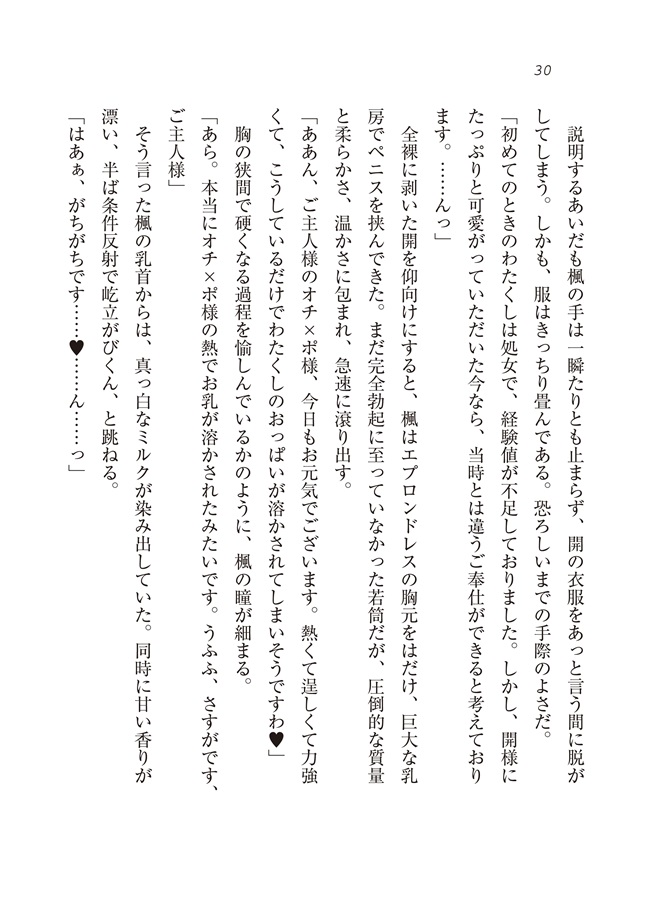 30
　説明するあいだも楓の手は一瞬たりとも止まらず、開の衣服をあっと言う間に脱が
してしまう。しかも、服はきっちり畳んである。恐ろしいまでの手際のよさだ。
「初めてのときのわたくしは処女で、経験値が不足しておりました。しかし、開様に
たっぷりと可愛がっていただいた今なら、当時とは違うご奉仕ができると考えており
ます。……んっ」
　全裸に剥いた開を仰向けにすると、楓はエプロンドレスの胸元をはだけ、巨大な乳
房でペニスを挟んできた。まだ完全勃起に至っていなかった若筒だが、圧倒的な質量
と柔らかさ、温かさに包まれ、急速に滾り出す。
「ああん、ご主人様のオチ×ポ様、今日もお元気でございます。熱くて逞しくて力強
くて、こうしているだけでわたくしのおっぱいが溶かされてしまいそうですわ♥」
　胸の狭間で硬くなる過程を愉しんでいるかのように、楓の瞳が細まる。
「あら。本当にオチ×ポ様の熱でお乳が溶かされたみたいです。うふふ、さすがです、
ご主人様」
　そう言った楓の乳首からは、真っ白なミルクが染み出していた。同時に甘い香りが
漂い、半ば条件反射で屹立がびくん、と跳ねる。
「はあぁ、がちがちです……♥……ん……っ」